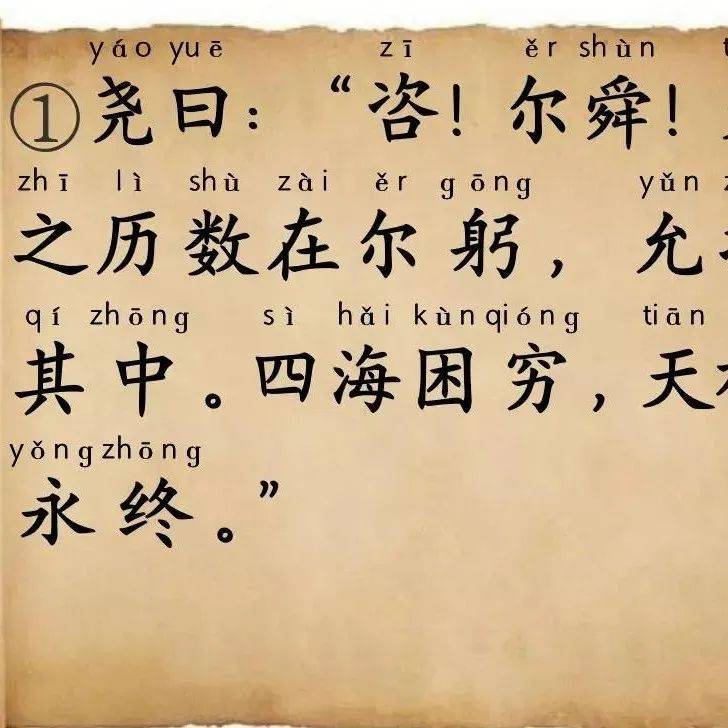 yáo yuē zī ěr shùn
①尧曰：“咨！尔舜！
zhī lì shù zài ěr gōng yǔn
之历数在尔躬，允
qí zhōng sì hǎi kùn qióng tiān
其中。四海困穷，天
yǒng zhōng
永终。”